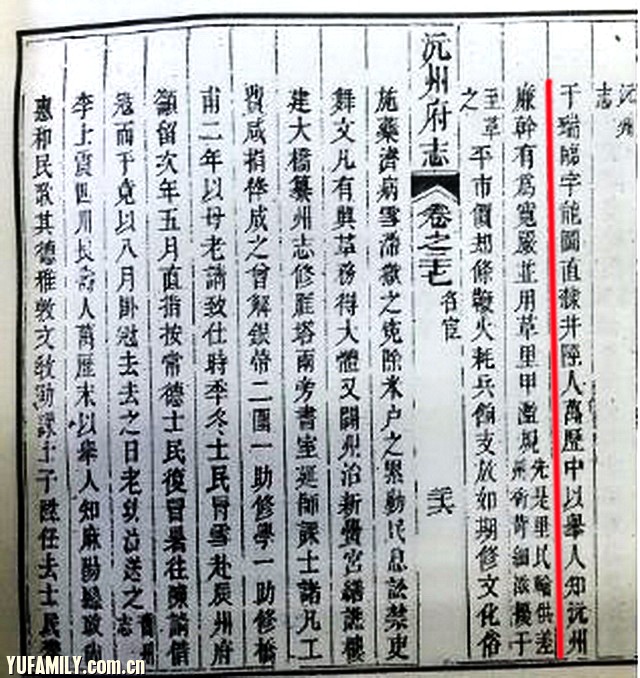 沅州
志
于瑞臨字能圖直隸井陘人萬歷中以舉人知沅州
廉幹有爲寬嚴並用革里甲濫規
先是里民輪供差
州衙苛細滋擾于
至革
之
平市價却條鞭火耗兵餉支放如期修文化俗
沅州府志
卷之
名宦
施藥濟病雪滯獄之寃除米户之累勸民息訟禁吏
舞文凡有興革務得大體又闢州治新黌宮繕譙樓
建大橋纂州志修雁塔兩旁書室延師課士諸凡工
費咸捐俸成之曾解銀帶二圍一助修學一助修橋
甫二年以母老請致仕時季冬士民冒雪赴辰州府
籲留次年五月直指按常德士民復冒暑往陳請借
宼而于竟以八月掛冠去去之日老幼泣送之
舊州
志
李上震四川長壽人萬歷末以舉人知麻陽縣政
惠和民歌其德雅敦文教勤課士子 任去士民
YUFAMILY.com.cn